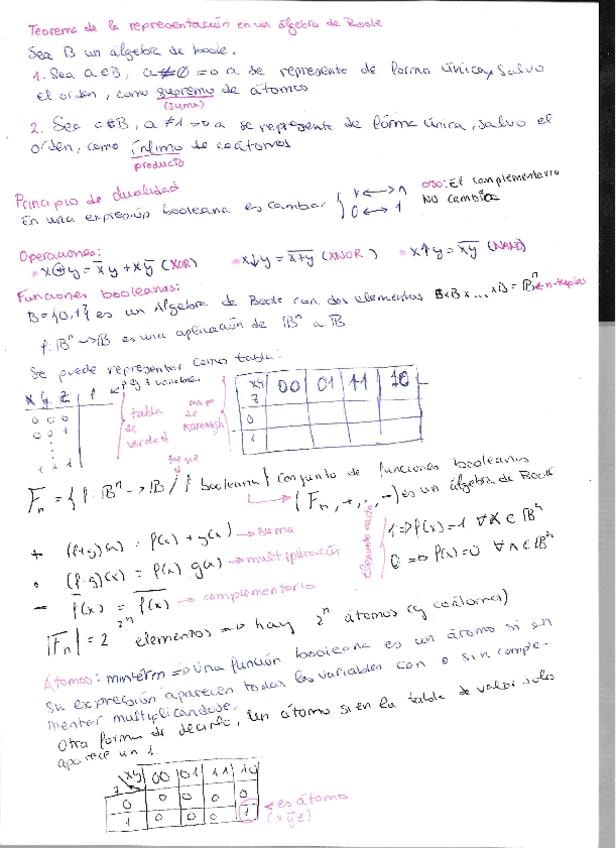 Teorema de la representación en un álgebra de Boole
Sea B un álgebra de boole.
1. Sea a∈B, a≠0 => a se representa de forma única, salvo
el orden, como supremo de átomos
(suma)
2. Sea a∈B, a≠1 => a se representa de forma única, salvo el
orden, como ínfimo de coátomos
producto
Principio de dualidad
En una expresión booleana es cambiar { ∨ ↔ ∧
0 ↔ 1
OJO: El complementario
NO cambia
Operaciones:
• x⊕y = x̄y + xȳ (XOR) • x↓y = \overline{x+y} (XNOR) • x↑y = \overline{xy} (NAND)
Funciones booleanas:
B={0,1} es un Álgebra de Boole con dos elementos B×B×...×B = 𝔹ⁿ ← n-tuplas
f: 𝔹ⁿ → 𝔹 es una aplicación de 𝔹ⁿ a 𝔹
Se puede representar como tabla:
x y z | f ← p.ej 3 variables
0 0 0
0 0 1
⋮
1 1 1
tabla
de
verdad
mapa
de
Karnaugh
xy 00 01 11 10
z
0
1
Fₙ = {f: 𝔹ⁿ → 𝔹 / f booleana} conjunto de funciones booleanas
→ (Fₙ, +, ·, −) es un álgebra de Boole
+ (f+g)(x) = f(x) + g(x) → suma
• (f·g)(x) = f(x) g(x) → multiplicación
− f̄(x) = \overline{f(x)} → complementario
elemento
1 => f(x)=1 ∀x∈𝔹ⁿ
0 => f(x)=0 ∀x∈𝔹ⁿ
|Fₙ| = 2^{2ⁿ} elementos => hay 2ⁿ átomos (y coátomos)
Átomos: minterm => Una función booleana es un átomo si en
su expresión aparecen todas las variables con o sin comple-
mentar multiplicándose.
Otra forma de decirlo, un átomo si en la tabla de valor solo
aparece un 1.
xy 00 01 11 10
z
0 0 0 0 0
1 0 0 0 1
← es átomo
(xȳz)